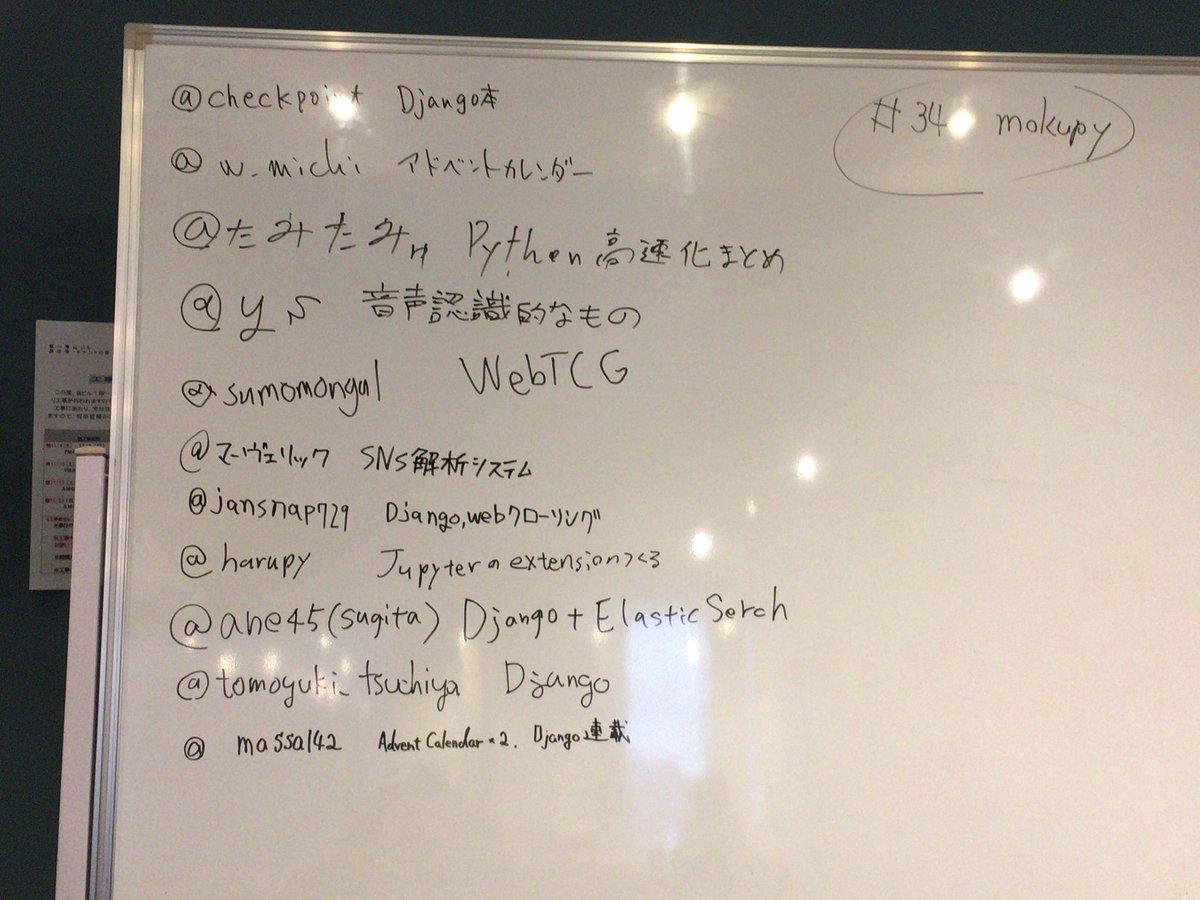 #34 mokupy
@checkpoint Django本
@w.michi アドベントカレンダー
@たみたみ Python高速化まとめ
@ys 音声認識的なもの
@sumomongal WebTCG
@マーヴェリック SNS解析システム
@jansnap729 Django,webクローリング
@harupy Jupyterのextensionつくる
@ane45(sugita) Django+ElasticSerch
@tomoyuki_tsuchiya Django
@massa142 Advent Calendar×2. Django連載